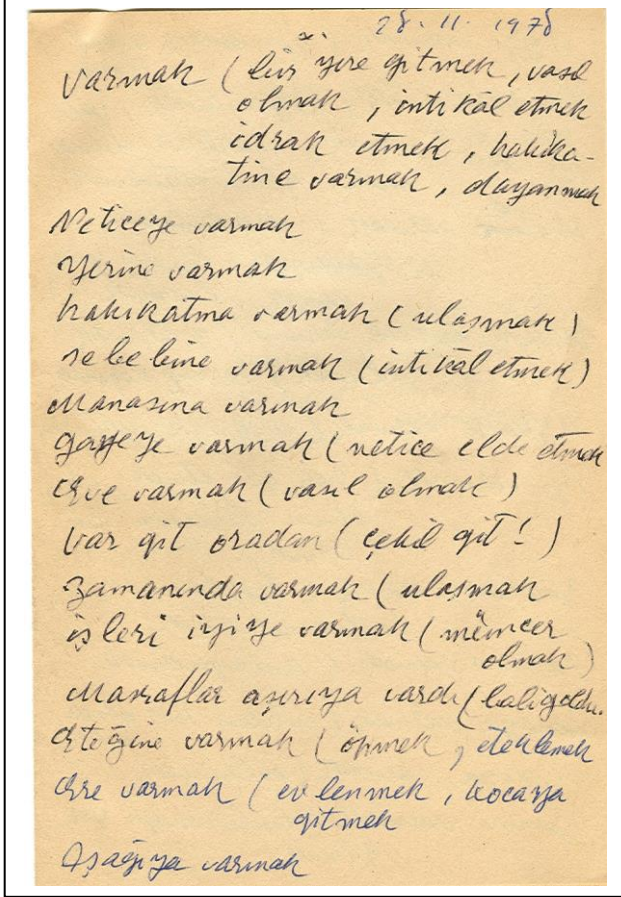 28.11.1978
Varmak (bir yere gitmek, vasıl
olmak, intikâl etmek
idrak etmek, hakika-
tine varmak, dayanmak
Neticeye varmak
Yerine varmak
hakikatına varmak (ulaşmak)
sebebine varmak (intikâl etmek)
Manasına varmak
gayeye varmak (netice elde etmek
Eve varmak (vasıl olmak)
Var git oradan (çekil git!)
Zamanında varmak (ulaşmak
işleri iyiye varmak (müncer
olmak)
Masraflar aşırıya vardı (baliğ oldu.
Eteğine varmak (öpmek, eteklemek
Ere varmak (evlenmek, kocaya
gitmek
Aşağıya varmak